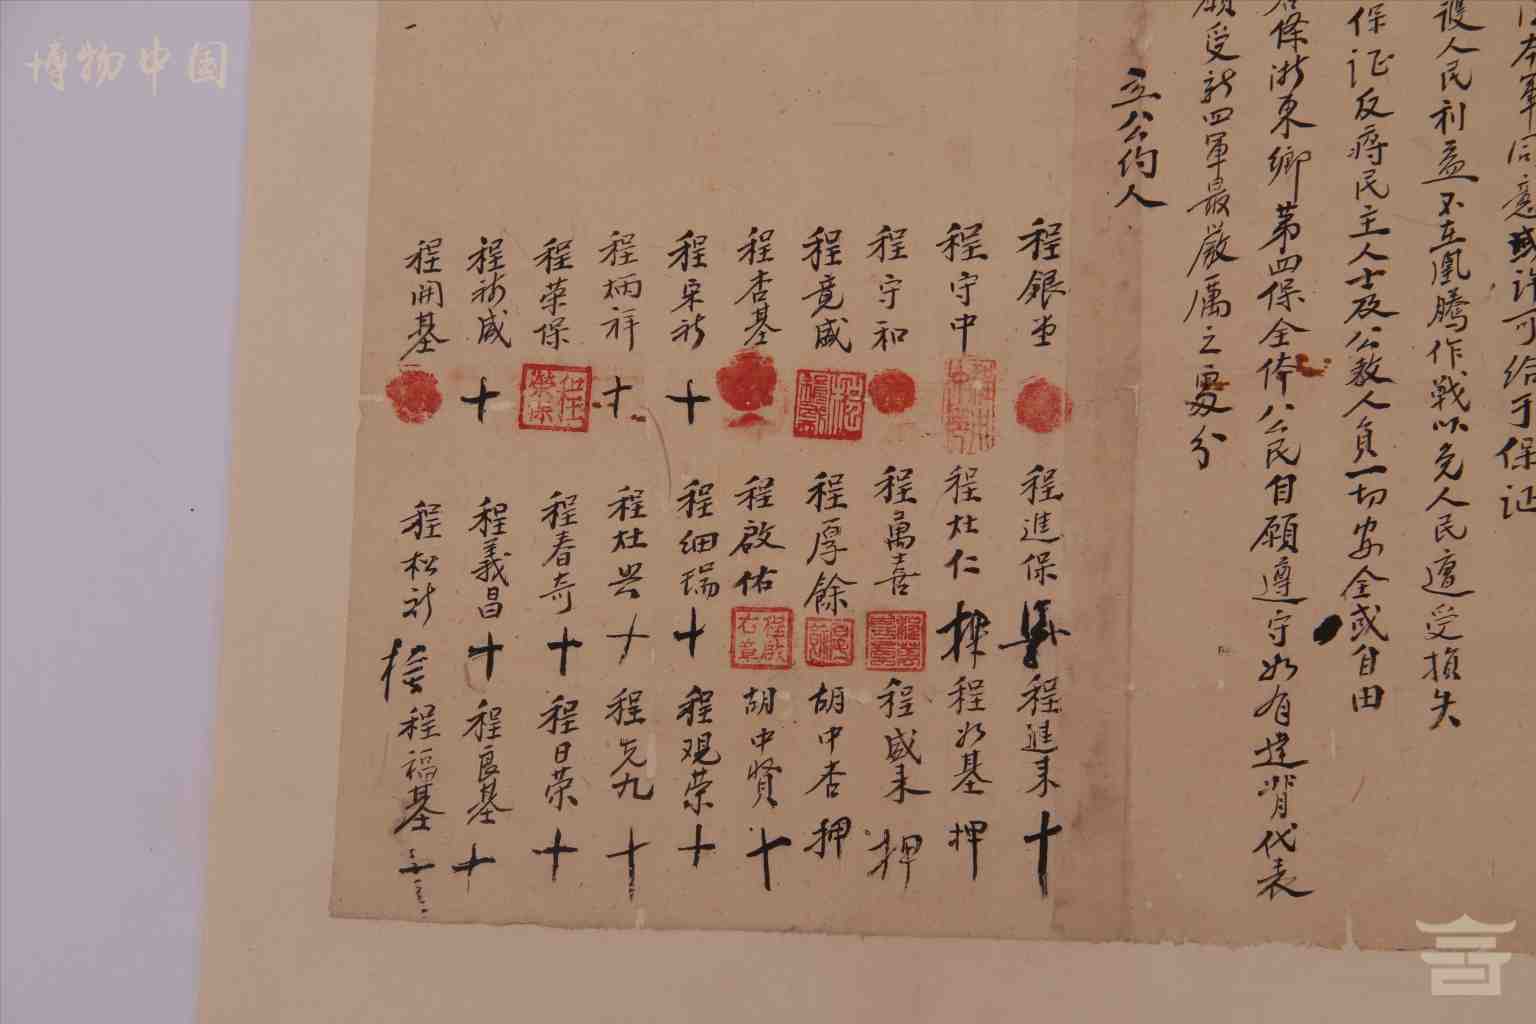 本軍同意或许可给予保证
護人民利益不在凰腾作戰以免人民遭受损失
保证反蒋民主人士及公教人員一切安全或自由
條浙東鄉第四保全体公民自願遵守如有违背代表
願受新四軍最嚴厲之處分
立公约人
程銀堂 程進保 程進来 十
程守中 程灶仁 押 程如基 押
程守和 程萬喜 程盛来 押
程竟盛 程厚餘 胡中杏 押
程杏基 程啟佑 胡中賢 十
程來新 十 程细瑞 十 程观荣 十
程炳祥 十 程灶兴 十 程先九 十
程荣保 程春奇 十 程日荣 十
程新盛 十 程義昌 十 程良基 十
程開基 程松新 程福基 十
博物中国